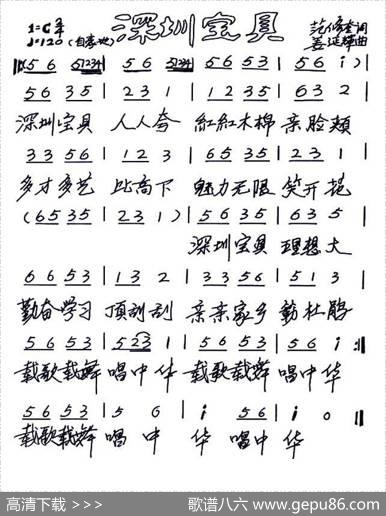 1=C 2/4 深圳宝贝
♩=120 (自豪地)
5 6 5123 | 5 6 5123 | 5 6 5 3 | 5 6 i )|
5 6 3 5 | 2 3 1 | 1 2 3 5 | 6 3 2 |
深圳宝贝 人人夸 红红木棉 亲脸颊
3 3 5 6 | 1 2 3 | 6 5 3 5 | 2 3 1 |
多才多艺 比高下 魅力无限 笑开花
( 6 5 3 5 | 2 3 1 ) | 5 6 3 5 | 6 3 5 |
深圳宝贝 理想大
6 6 5 3 | 1 3 2 | 3 3 5 6 | 5 1 3 |
勤奋学习 顶刮刮 亲亲家乡 杜鹃
5 6 5 3 | 5 2 3 1 | 5 6 5 3 | 5 6 i :||
载歌载舞 唱中华 载歌载舞 唱中华
5 6 5 3 | 5 6 | i 5 6 | i 0 ||
载歌载舞 唱 中 华 唱中 华
高清下载 >>> 歌谱八六 www.gepu86.com